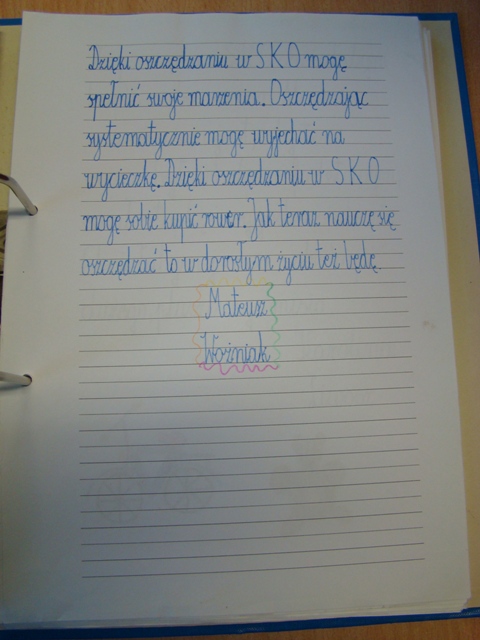 Dzięki oszczędzaniu w SKO mogę
spełnić swoje marzenia. Oszczędzając
systematycznie mogę wyjechać na
wycieczkę. Dzięki oszczędzaniu w SKO
mogę sobie kupić rower. Jak teraz nauczę się
oszczędzać to w dorosłym życiu też będę.
Mateusz
Woźniak